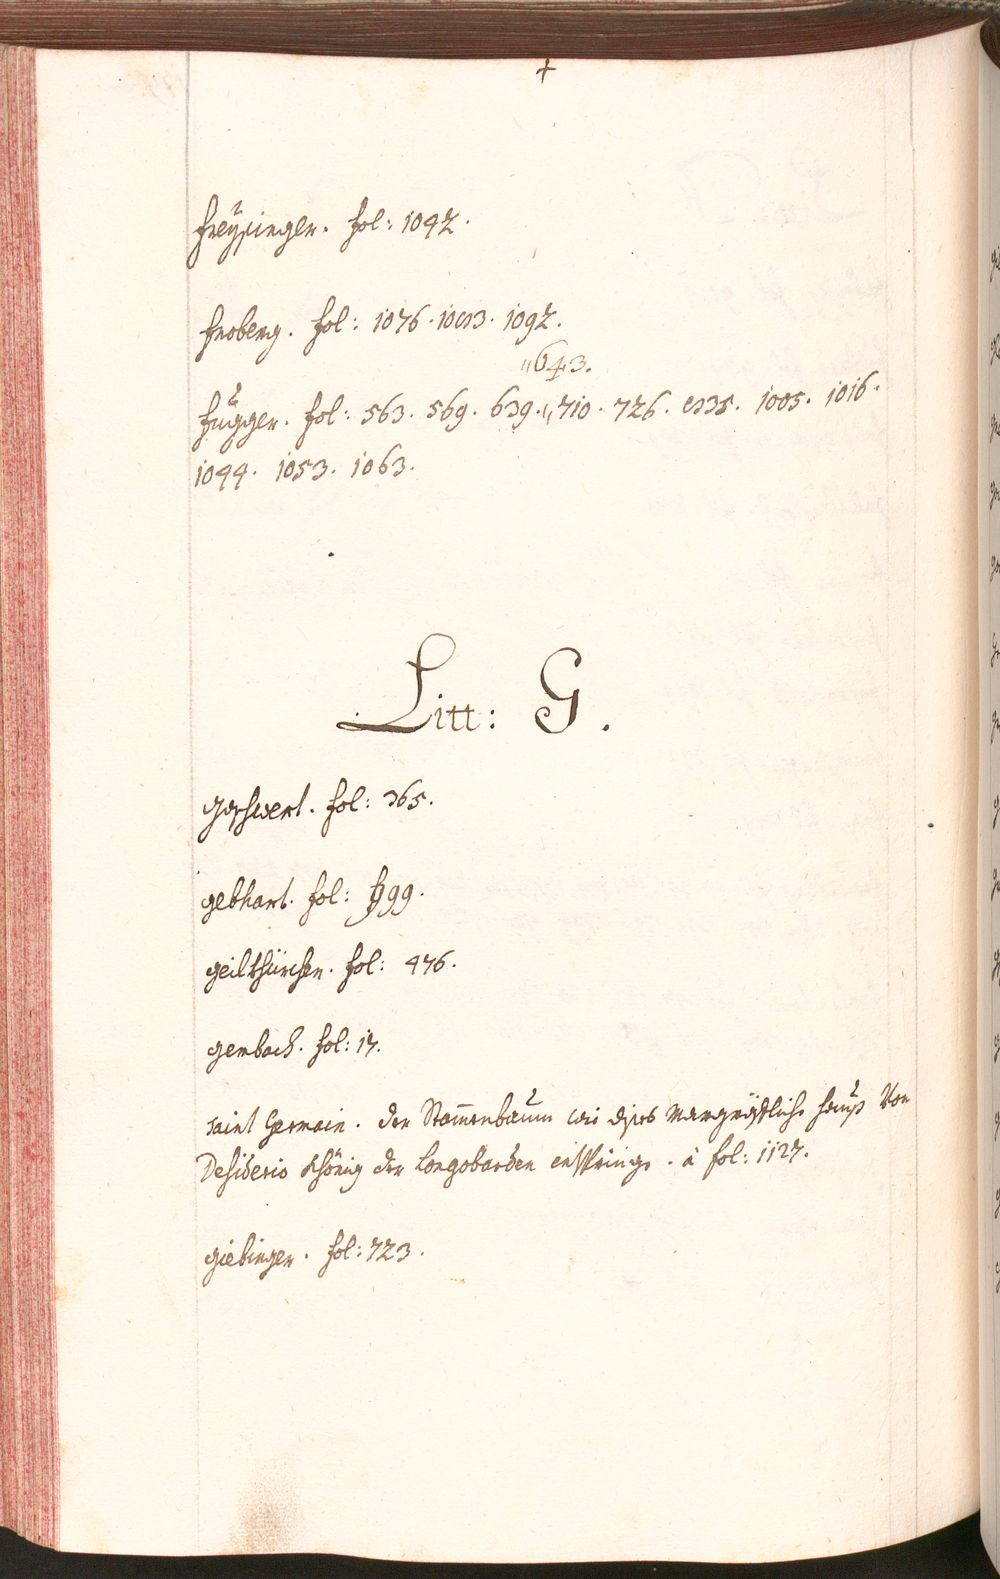 +
Freysinger. fol: 1042.
Froberg. fol: 1076. 1083. 1092.
"643.
Fugger. fol: 563. 569. 639." 710. 726. 835. 1005. 1016.
1044. 1053. 1063.
Litt: G.
gaschwert. fol: 365.
gebhart. fol: 599.
geilkhürchen. fol: 476.
gerbach. fol: 17.
saint Germain. der Stammenbaum wie dises Margräfliche hauß Von
Desiderio Khönig der Longobarden entspringe. à fol: 1127.
giebinger. fol: 723.